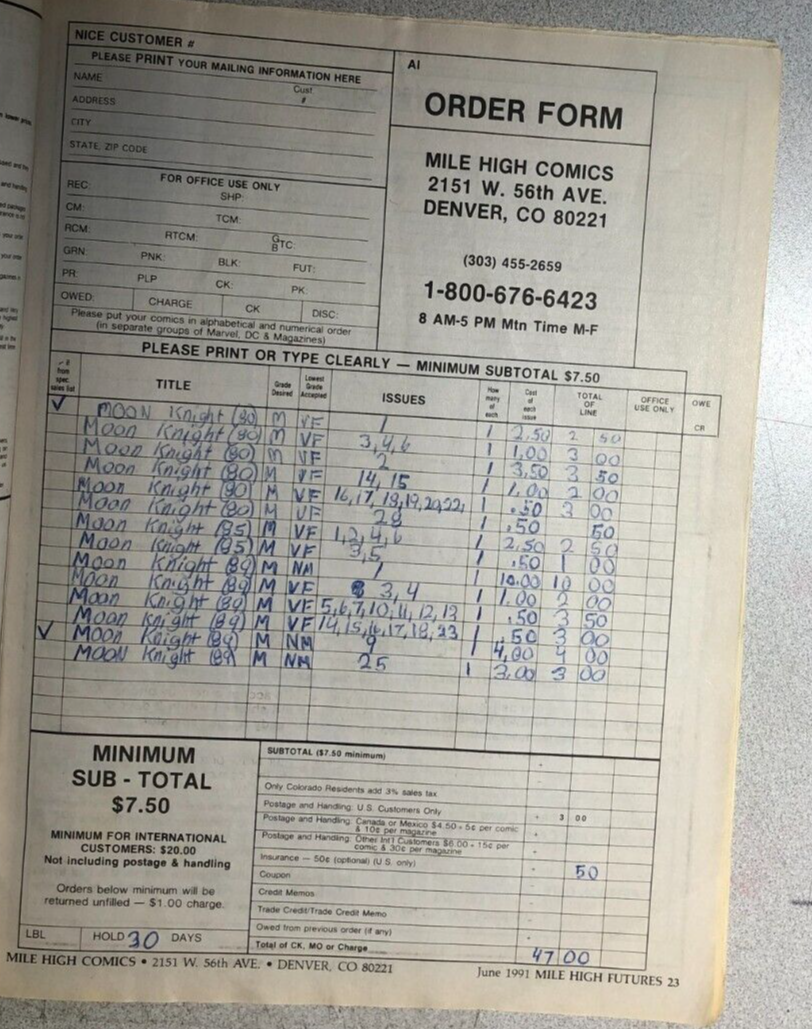 NICE CUSTOMER #
PLEASE PRINT YOUR MAILING INFORMATION HERE
NAME
Cust #
ADDRESS
CITY
STATE, ZIP CODE
FOR OFFICE USE ONLY
REC: SHP:
CM: TCM:
RCM: RTCM: G BTC:
GRN: PNK: BLK: FUT:
PR: PLP CK: PK:
OWED: CHARGE CK DISC:
Please put your comics in alphabetical and numerical order
(in separate groups of Marvel, DC & Magazines)
AI
ORDER FORM
MILE HIGH COMICS
2151 W. 56th AVE.
DENVER, CO 80221
(303) 455-2659
1-800-676-6423
8 AM-5 PM Mtn Time M-F
PLEASE PRINT OR TYPE CLEARLY — MINIMUM SUBTOTAL $7.50
✓ if from spec. sales list TITLE Grade Desired Lowest Grade Accepted ISSUES How many of each Cost of each issue TOTAL OF LINE OFFICE USE ONLY OWE CR
✓ MOON Knight (80) M VF 1 1 2.50 2 50
Moon Knight (80) M VF 3,4,6 1 1.00 3 00
Moon Knight (80) M VF 2 1 3.50 3 50
Moon Knight (80) M VF 14, 15 1 1.00 2 00
Moon Knight (80) M VF 16,17,18,19,20,22, 1 .50 3 00
Moon Knight (80) M VF 28 1 .50 50
Moon Knight (85) M VF 1,2,4,6 1 2.50 2 50
Moon Knight (85) M VF 3,5 1 .50 1 00
Moon Knight (89) M NM 1 1 10.00 10 00
Moon Knight (89) M VF 3, 4 1 1.00 2 00
Moon Knight (89) M VF 5,6,7,10,11,12,13 1 .50 3 50
Moon Knight (89) M VF 14,15,16,17,18,23 1 .50 3 00
✓ Moon Knight (89) M NM 9 1 4.00 4 00
MOON Knight (89) M NM 25 1 3.00 3 00
MINIMUM
SUB - TOTAL
$7.50
MINIMUM FOR INTERNATIONAL
CUSTOMERS: $20.00
Not including postage & handling
Orders below minimum will be
returned unfilled — $1.00 charge.
LBL HOLD 30 DAYS
SUBTOTAL ($7.50 minimum)
Only Colorado Residents add 3% sales tax
Postage and Handling: U.S. Customers Only + 3 00
Postage and Handling: Canada or Mexico $4.50 + 5¢ per comic
& 10¢ per magazine
Postage and Handling: Other Int'l Customers $6.00 + 15¢ per
comic & 30¢ per magazine
Insurance — 50¢ (optional) (U.S. only) 50
Coupon
Credit Memos
Trade Credit/Trade Credit Memo
Owed from previous order (if any)
Total of CK, MO or Charge 47 00
MILE HIGH COMICS • 2151 W. 56th AVE. • DENVER, CO 80221
June 1991 MILE HIGH FUTURES 23